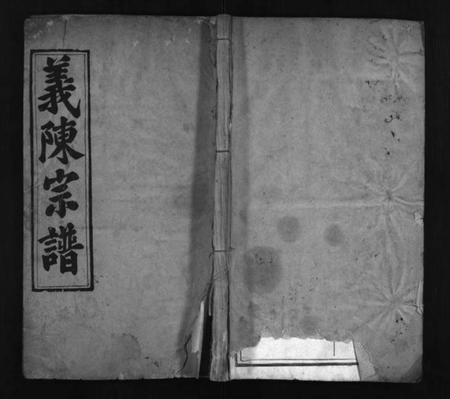 義陳宗譜